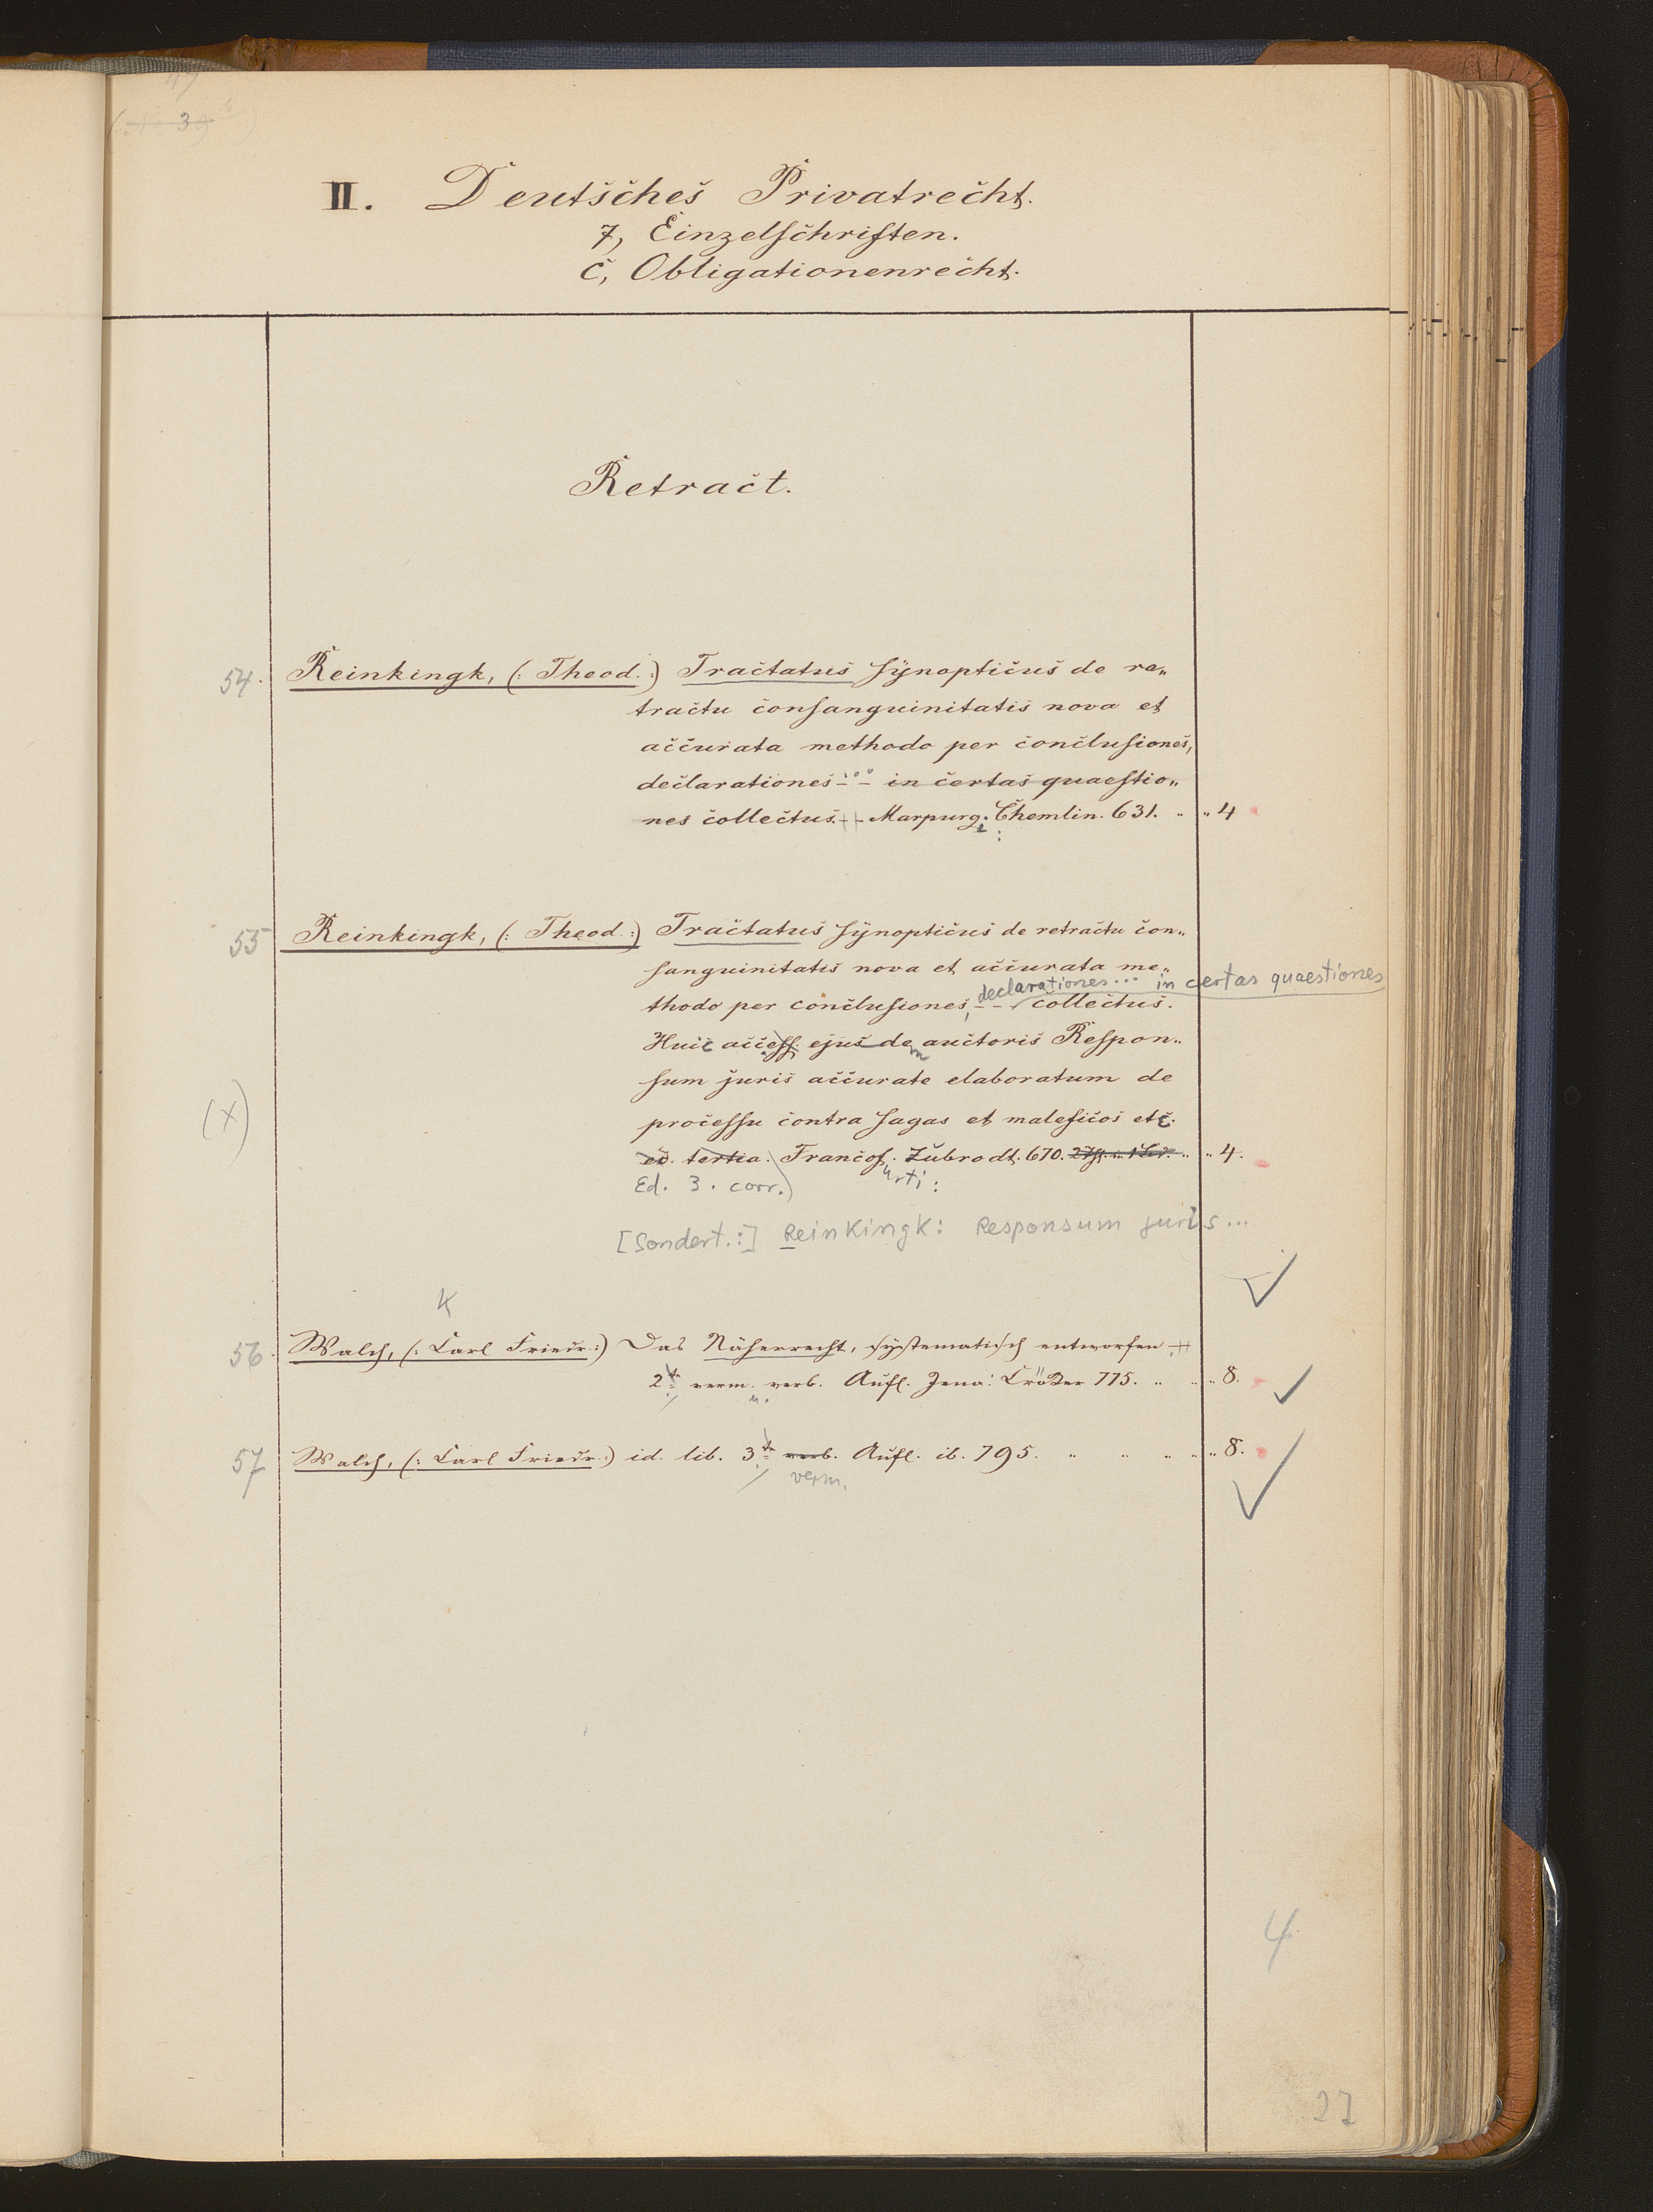 II. Deutsches Privatrecht.
7, Einzelschriften.
c, Obligationenrecht.
Retract.
54. Reinkingk, (: Theod. :) Tractatus synopticus de re„
tractu consanguinitatis nova et
accurata methodo per conclusiones,
declarationes - ... - in certas quaestio„
nes collectus. - - Marpurg. Chemlin. 631. „ „ 4
55 Reinkingk, (: Theod. :) Tractatus synopticus de retractu con„
sanguinitatis nova et accurata me„
declarationes ... in certas quaestiones
thodo per conclusiones, - - collectus.
Huic access. ejusdem auctoris Respon„
sum juris accurate elaboratum de
(x) processu contra sagas et maleficos etc.
ed. tertia. Francof. Zubrodt. 670. „ „ 4.
Ed. 3. corr.) urti :
[Sondert.:] Reinkingk: Responsum juris ...
K
56. Walch, (: Carl Friedr. :) Das Näherrecht, systematisch entworfen
2te verm. verb. Aufl. Jena: Cröker 775. „ „ „ 8.
u.
57 Walch, (: Carl Friedr. :) id. lib. 3te verb. Aufl. ib. 795. „ „ „ „ „ 8.
verm.
4
27